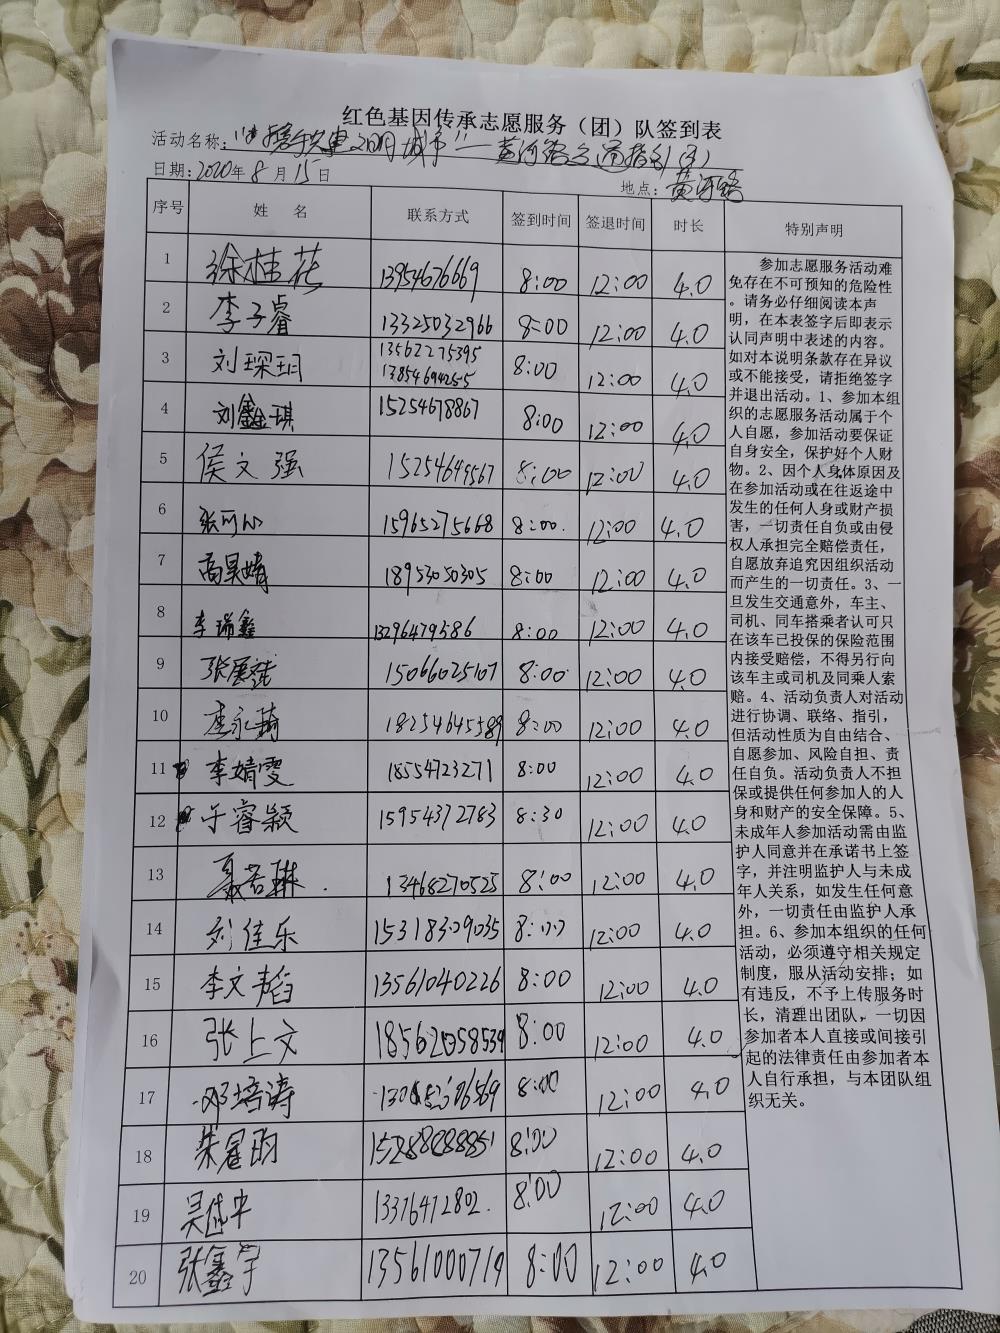 红色基因传承志愿服务（团）队签到表
活动名称：“携手共建文明城市”——黄河路交通指引（3）
日期：2020年8月15日 地点：黄河路
序号 姓 名 联系方式 签到时间 签退时间 时长 特别声明
1 徐桂花 13954676669 8:00 12:00 4.0
2 李子睿 13325032966 8:00 12:00 4.0
3 刘琛玥 13562275395 8:00 12:00 4.0
13854694255
4 刘鑫琪 15254678867 8:00 12:00 4.0
5 侯文强 15254649567 8:00 12:00 4.0
6 张可心 15965275668 8:00. 12:00 4.0
7 高昊婧 18953050305 8:00 12:00 4.0
8 李瑞鑫 13296479586 8:00 12:00 4.0
9 张展 15066025107 8:00 12:00 4.0
10 李永琦 18254645589 8:00 12:00 4.0
11 李婧雯 18554723271 8:00 12:00 4.0
12 于睿颖 15954372783 8:30 12:00 4.0
13 聂若琳. 13468270525 8:00 12:00 4.0
14 刘佳乐 15318309035 8:00 12:00 4.0
15 李文韬 13561040226 8:00 12:00 4.0
16 张上文 18562058539 8:00 12:00 4.0
17 邓培涛 8:00 12:00 4.0
18 8:00 12:00 4.0
19 吴 13376472802. 8:00 12:00 4.0
20 张鑫宇 13561000719 8:00 12:00 4.0
参加志愿服务活动难
免存在不可预知的危险性
。请务必仔细阅读本声
明，在本表签字后即表示
认同声明中表述的内容。
如对本说明条款存在异议
或不能接受，请拒绝签字
并退出活动。1、参加本组
织的志愿服务活动属于个
人自愿，参加活动要保证
自身安全，保护好个人财
物。2、因个人身体原因及
在参加活动或在往返途中
发生的任何人身或财产损
害，一切责任自负或由侵
权人承担完全赔偿责任，
自愿放弃追究因组织活动
而产生的一切责任。3、一
旦发生交通意外，车主、
司机、同车搭乘者认可只
在该车已投保的保险范围
内接受赔偿，不得另行向
该车主或司机及同乘人索
赔。4、活动负责人对活动
进行协调、联络、指引，
但活动性质为自由结合、
自愿参加、风险自担、责
任自负。活动负责人不担
保或提供任何参加人的人
身和财产的安全保障。5、
未成年人参加活动需由监
护人同意并在承诺书上签
字，并注明监护人与未成
年人关系，如发生任何意
外，一切责任由监护人承
担。6、参加本组织的任何
活动，必须遵守相关规定
制度，服从活动安排；如
有违反，不予上传服务时
长，清理出团队，一切因
参加者本人直接或间接引
起的法律责任由参加者本
人自行承担，与本团队组
织无关。